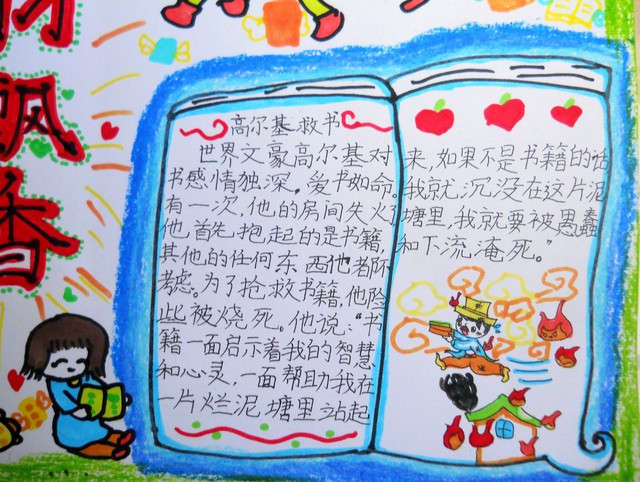 飘
香
高尔基救书
世界文豪高尔基对
书感情独深，爱书如命。
有一次，他的房间失火了
他首先抱起的是书籍，
其他的任何东西他都不
考虑。为了抢救书籍，他险
些被烧死。他说：“书
籍一面启示着我的智慧
和心灵，一面帮助我在
一片烂泥塘里站起
来，如果不是书籍的话
我就沉没在这片泥
塘里，我就要被愚蠢
和下流淹死。”